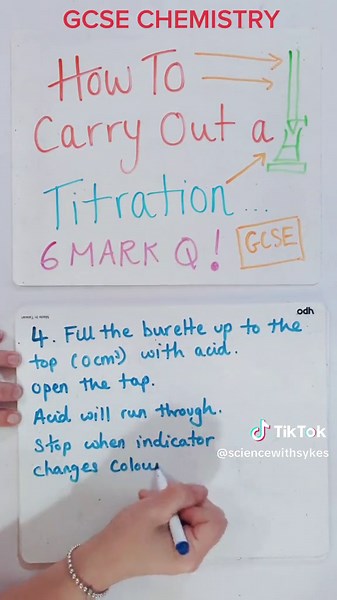 GCSE CHEMISTRY
How To
Carry Out a
Titration...
6 MARK Q! GCSE
Made in Taiwan
odh
4. Fill the burette up to the
top (0cm³) with acid.
Open the tap.
Acid will run through.
Stop when indicator
changes colou
TikTok
@sciencewithsykes